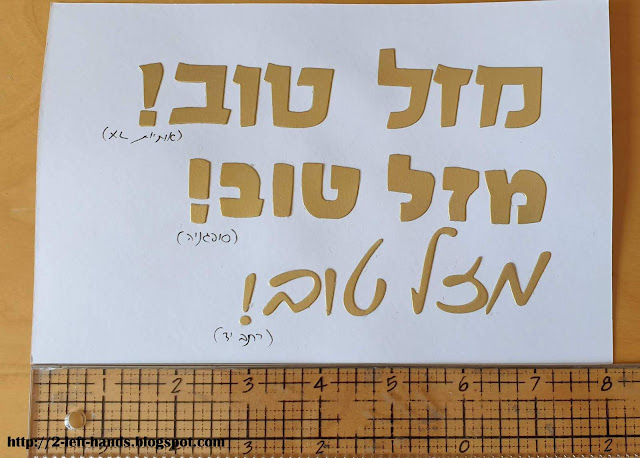 מזל טוב!
(אותיות XL)
מזל טוב!
(סופגניה)
מזל טוב!
(כתב יד)
1 2 3 4 5 6 7 8
3 2 0 1 2
http://2-left-hands.blogspot.com